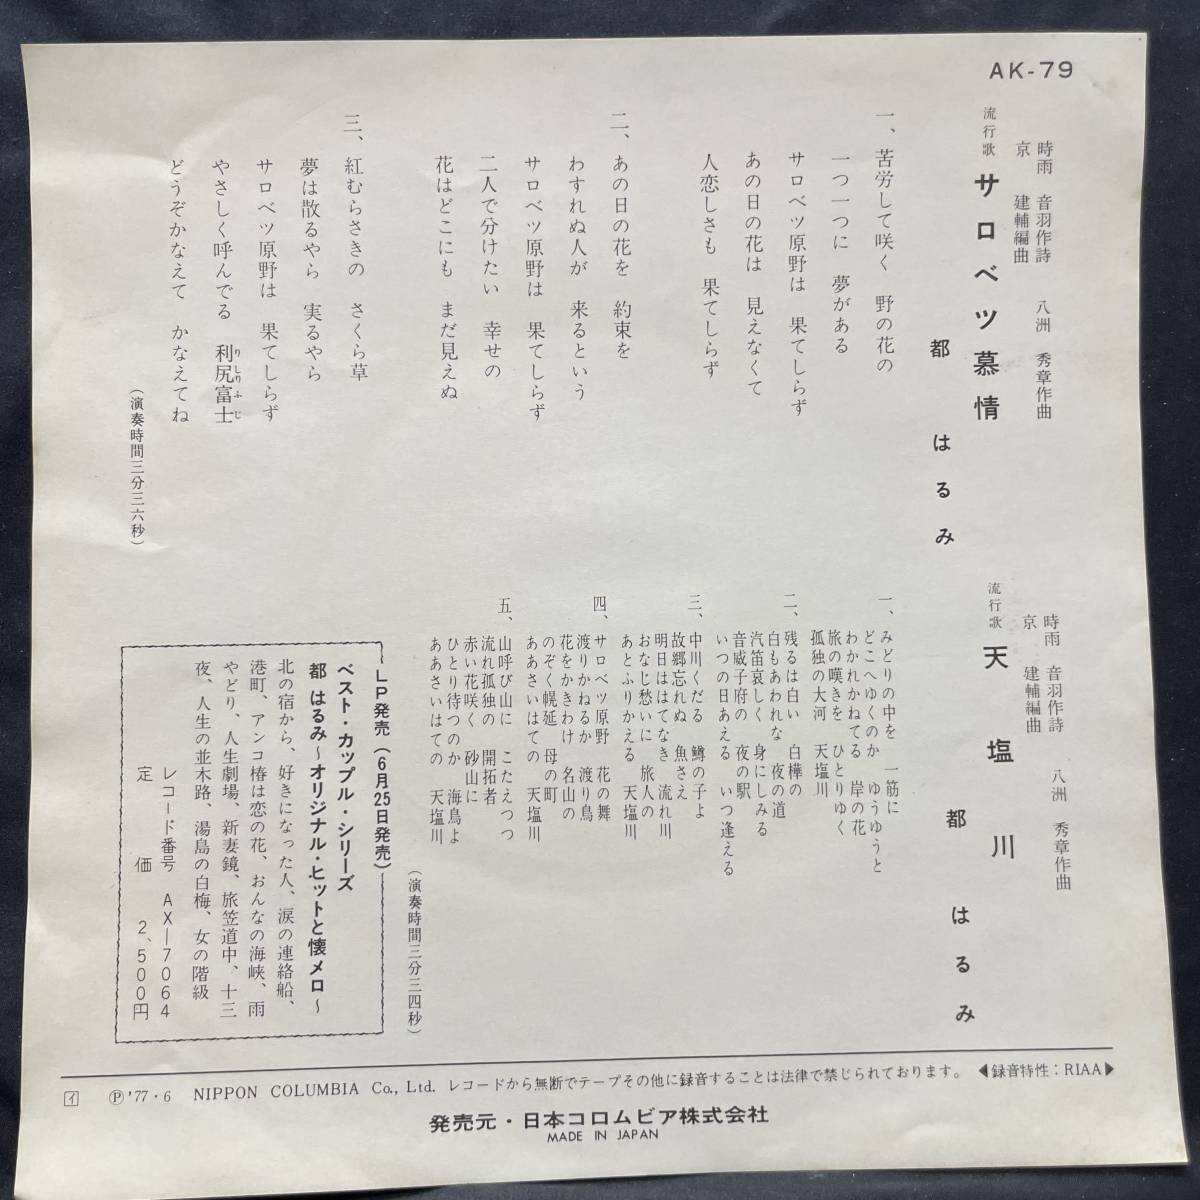 AK-79
時雨 音羽作詩 八洲 秀章作曲
京 建輔編曲
流行歌 サロベツ慕情
都 はるみ
一、苦労して咲く 野の花の
一つ一つに 夢がある
サロベツ原野は 果てしらず
あの日の花は 見えなくて
人恋しさも 果てしらず
二、あの日の花を 約束を
わすれぬ人が 来るという
サロベツ原野は 果てしらず
二人で分けたい 幸せの
花はどこにも まだ見えぬ
三、紅むらさきの さくら草
夢は散るやら 実るやら
サロベツ原野は 果てしらず
やさしく呼んでる 利尻富士
りしりふじ
どうぞかなえて かなえてね
(演奏時間三分三六秒)
時雨 音羽作詩 八洲 秀章作曲
京 建輔編曲
流行歌 天塩川
都 はるみ
一、みどりの中を 一筋に
どこへゆくのか ゆうゆうと
わかれかねてる 岸の花
旅の嘆きを ひとりゆく
孤独の大河 天塩川
二、残るは白い 白樺の
白もあわれな 夜の道
汽笛哀しく 身にしみる
音威子府の 夜の駅
いつの日あえる いつ逢える
三、中川くだる 鱒の子よ
故郷忘れぬ 魚さえ
明日ははてなき 流れ川
おなじ愁いに 旅人の
あとふりかえる 天塩川
四、サロベツ原野 花の舞
渡りかねるか 渡り鳥
花をかきわけ 名山の
のぞく幌延 母の町
ああさいはての 天塩川
五、山呼び山に こたえつつ
流れ孤独の 開拓者
赤い花咲く 砂山に
ひとり待つのか 海鳥よ
ああさいはての 天塩川
(演奏時間三分三四秒)
LP発売(6月25日発売)
ベスト・カップル・シリーズ
都 はるみ〜オリジナル・ヒットと懐メロ〜
北の宿から、好きになった人、涙の連絡船、
港町、アンコ椿は恋の花、おんなの海峡、雨
やどり、人生劇場、新妻鏡、旅笠道中、十三
夜、人生の並木路、湯島の白梅、女の階級
レコード番号 AX—7064
定 価 2,500円
イ Ⓟ'77・6 NIPPON COLUMBIA Co., Ltd. レコードから無断でテープその他に録音することは法律で禁じられております。 ◀録音特性：RIAA▶
発売元・日本コロムビア株式会社
MADE IN JAPAN